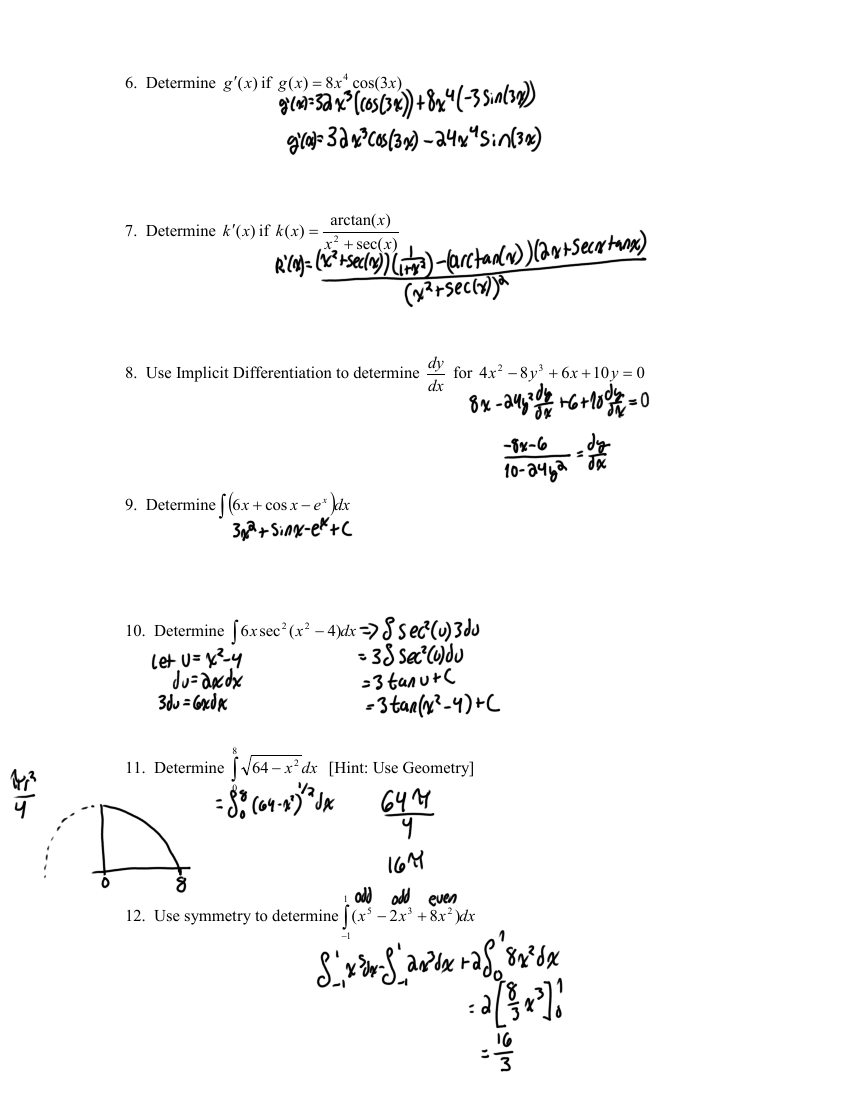 6. Determine g′(x) if g(x) = 8x⁴ cos(3x)
g'(x)=32x³(cos(3x))+8x⁴(-3sin(3x))
g'(x)=32x³cos(3x)-24x⁴sin(3x)
7. Determine k′(x) if k(x) = arctan(x) / (x² + sec(x))
k'(x)= (x²+sec(x))(1/(1+x²))-(arctan(x))(2x+secxtanx) / (x²+sec(x))²
8. Use Implicit Differentiation to determine dy/dx for 4x² − 8y³ + 6x + 10y = 0
8x-24y² dy/dx +6+10 dy/dx =0
(-8x-6)/(10-24y²) = dy/dx
9. Determine ∫(6x + cos x − eˣ)dx
3x²+sinx-eˣ+C
10. Determine ∫6x sec²(x² − 4)dx => ∫sec²(u)3du
Let u=x²-4 =3∫sec²(u)du
du=2xdx =3tanu+C
3du=6xdx =3tan(x²-4)+C
11. Determine ∫₀⁸ √(64 − x²) dx [Hint: Use Geometry]
πr²/4
=∫₀⁸(64-x²)^1/2 dx 64π/4
16π
0 8
odd odd even
12. Use symmetry to determine ∫₋₁¹(x⁵ − 2x³ + 8x²)dx
∫₋₁¹x⁵dx-∫₋₁¹2x³dx+2∫₀¹8x²dx
=2[8/3 x³]₀¹
=16/3